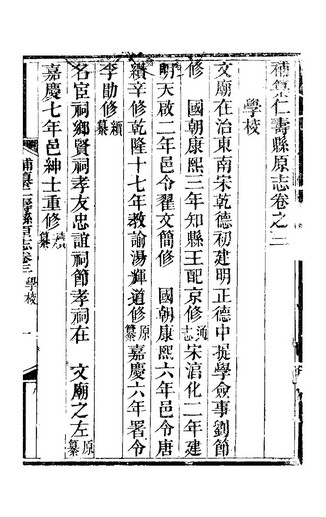 補纂仁壽縣原志卷之三
學校
文廟在治東南宋乾德初建明正德中提學僉事劉節
修　國朝康熙三年知縣王配京修通志宋淳化二年建
明天啟二年邑令翟文簡修　國朝康熙六年邑令唐
纘辛修乾隆十七年教諭湯輝道修原纂嘉慶六年署令
李助修續纂
名宦祠鄉賢祠孝友忠誼祠節孝祠在　文廟之左原纂
嘉慶七年邑紳士重修續纂
補纂仁壽縣原志卷三　學校　一